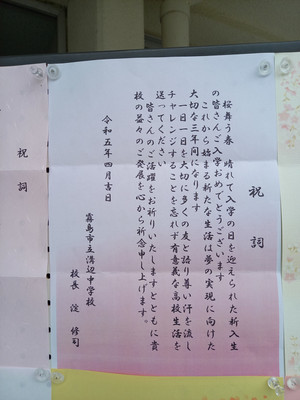 祝詞
桜舞う春　晴れて入学の日を迎えられた新入生
の皆さんご入学おめでとうございます
これから始まる新たな生活は夢の実現に向けた
大切な三年間になります
一日一日を大切に多くの友と語り尊い汗を流し
チャレンジすることを忘れず有意義な高校生活を
送ってください
皆さんのご活躍をお祈りいたしますとともに貴
校の益々のご発展を心から祈念申し上げます。
令和五年四月吉日
霧島市立溝辺中学校
校長　淀　修司
祝詞